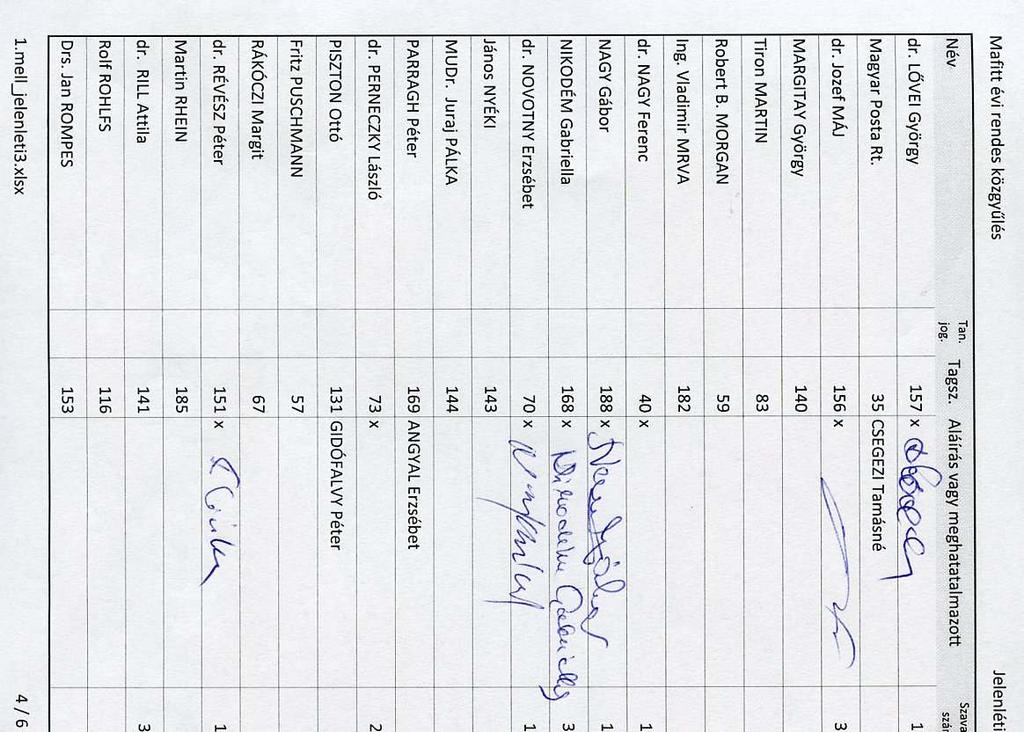 Mafitt évi rendes közgyűlés Jelenléti
Név Tan. jog. Tagsz. Aláírás vagy meghatatalmazott Szava szá
dr. LŐVEI György 157 x 1
Magyar Posta Rt. 35 CSEGEZI Tamásné
dr. Jozef MÁJ 156 x 3
MARGITAY György 140
Tiron MARTIN 83
Robert B. MORGAN 59
Ing. Vladimir MRVA 182
dr. NAGY Ferenc 40 x 1
NAGY Gábor 188 x Nagy Gábor 1
NIKODÉM Gabriella 168 x Nikodém Gabriella 3
dr. NOVOTNY Erzsébet 70 x 1
János NYÉKI 143
MUDr. Juraj PÁLKA 144
PARRAGH Péter 169 ANGYAL Erzsébet
dr. PERNECZKY László 73 x 2
PISZTON Ottó 131 GIDÓFALVY Péter
Fritz PUSCHMANN 57
RÁKÓCZI Margit 67
dr. RÉVÉSZ Péter 151 x 1
Martin RHEIN 185
dr. RILL Attila 141 3
Rolf ROHLFS 116
Drs. Jan ROMPES 153
1.mell_jelenleti3.xlsx 4 / 6